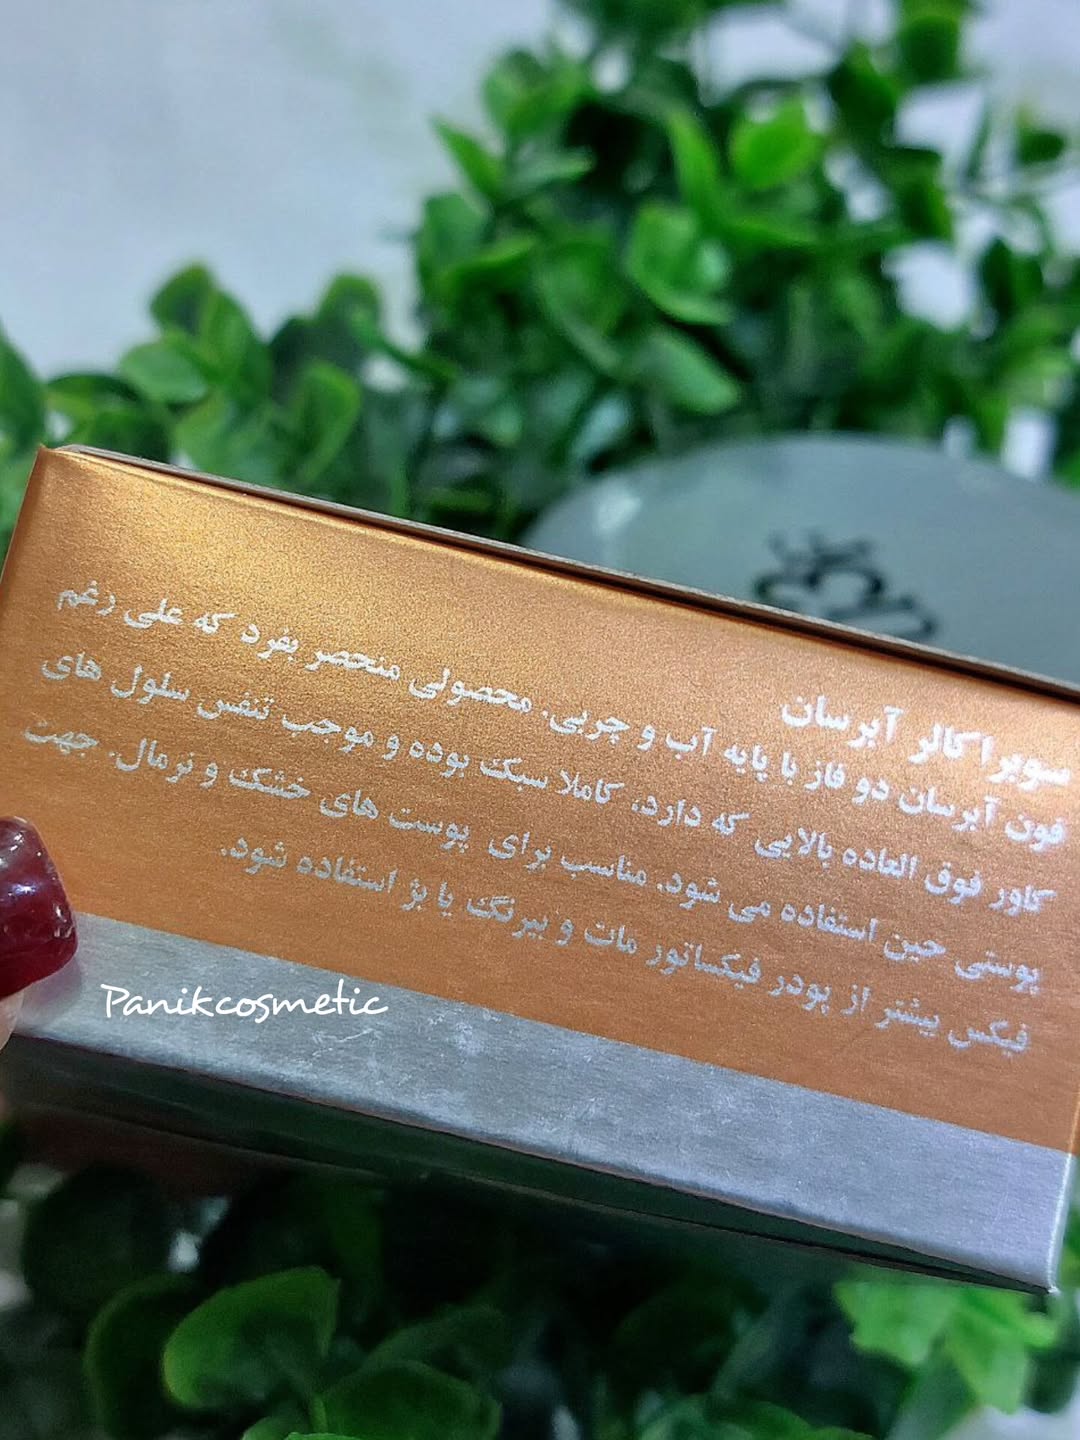 سوبراکالر آبرسان
فون آبرسان دو فاز با پایه آب و چربی. محصولی منحصر بفرد که علی رغم
کاور فوق العاده بالایی که دارد، کاملا سبک بوده و موجب تنفس سلول های
پوستی حین استفاده می شود. مناسب برای پوست های خشک و نرمال. جهت
فیکس بیشتر از پودر فیکساتور مات و بیرنگ یا بژ استفاده شود.
Panikcosmetic